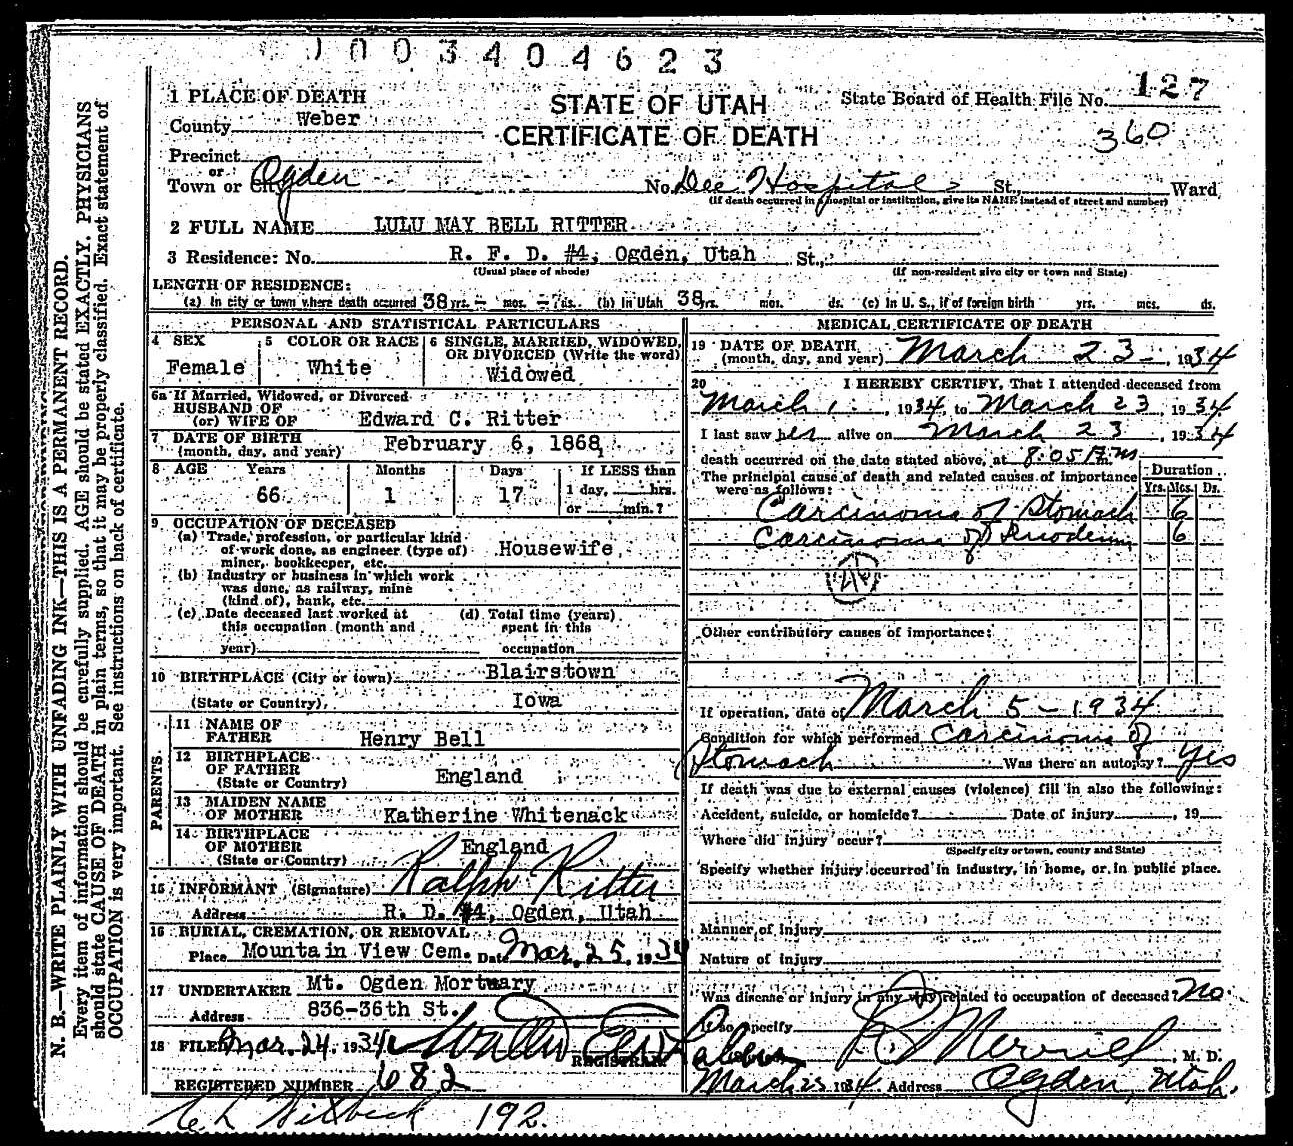 1003404623
1 PLACE OF DEATH
STATE OF UTAH
CERTIFICATE OF DEATH
State Board of Health File No. 127
360
County Weber
Precinct
or
Town or City Ogden No. Dee Hospital St., Ward
(If death occurred in a hospital or institution, give its NAME instead of street and number)
2 FULL NAME LULU MAY BELL RITTER
3 Residence: No. R. F. D. #4, Ogden, Utah St.,
(Usual place of abode) (If non-resident give city or town and State)
LENGTH OF RESIDENCE:
(a) In city or town where death occurred 38 yrs. - mos. - ds. (b) In Utah 38 yrs. mos. ds. (c) in U. S., if of foreign birth yrs. mos. ds.
PERSONAL AND STATISTICAL PARTICULARS
4 SEX Female
5 COLOR OR RACE White
6 SINGLE, MARRIED, WIDOWED, OR DIVORCED (Write the word)
Widowed
6a If Married, Widowed, or Divorced
HUSBAND OF
(or) WIFE OF Edward C. Ritter
7 DATE OF BIRTH
(month, day, and year) February 6, 1868
8 AGE Years Months Days If LESS than
66 1 17 1 day, hrs.
or min.?
9 OCCUPATION OF DECEASED
(a) Trade, profession, or particular kind
of work done, as engineer (type of)
miner, bookkeeper, etc. Housewife
(b) Industry or business in which work
was done, as railway, mine
(kind of), bank, etc.
(c) Date deceased last worked at
this occupation (month and
year)
(d) Total time (years)
spent in this
occupation
10 BIRTHPLACE (City or town) Blairstown
(State or Country) Iowa
PARENTS.
11 NAME OF
FATHER Henry Bell
12 BIRTHPLACE
OF FATHER
(State or Country) England
13 MAIDEN NAME
OF MOTHER Katherine Whitenack
14 BIRTHPLACE
OF MOTHER
(State or Country) England
15 INFORMANT (Signature) Ralph Ritter
Address R. D. #4, Ogden, Utah
16 BURIAL, CREMATION, OR REMOVAL
Place Mountain View Cem. Date Mar. 25, 1934
17 UNDERTAKER Mt. Ogden Mortuary
Address 836-36th St.
18 FILED Mar. 24, 1934
REGISTRAR
REGISTERED NUMBER 682
192.
MEDICAL CERTIFICATE OF DEATH
19 DATE OF DEATH
(month, day, and year) March 23 - , 1934
20 I HEREBY CERTIFY, That I attended deceased from
March 1, 1934, to March 23, 1934
I last saw her alive on March 23, 1934
death occurred on the date stated above, at 8:05 P m
The principal cause of death and related causes of importance
were as follows:
Duration
Yrs. Mos. Ds.
Carcinoma of Stomach 6
Carcinoma of 6
46
Other contributory causes of importance:
If operation, date of March 5 - 1934
Condition for which performed Carcinoma of
Stomach Was there an autopsy? Yes
If death was due to external causes (violence) fill in also the following:
Accident, suicide, or homicide? Date of injury , 19
Where did injury occur?
(Specify city or town, county and State)
Specify whether injury occurred in industry, in home, or in public place.
Manner of injury
Nature of injury
Was disease or injury in any way related to occupation of deceased? No
If so, specify
Merrill, M. D.
March 23 1934 Address Ogden, Utah.
N. B.—WRITE PLAINLY WITH UNFADING INK—THIS IS A PERMANENT RECORD.
Every item of information should be carefully supplied. AGE should be stated EXACTLY. PHYSICIANS
should state CAUSE OF DEATH in plain terms, so that it may be properly classified. Exact statement of
OCCUPATION is very important. See instructions on back of certificate.